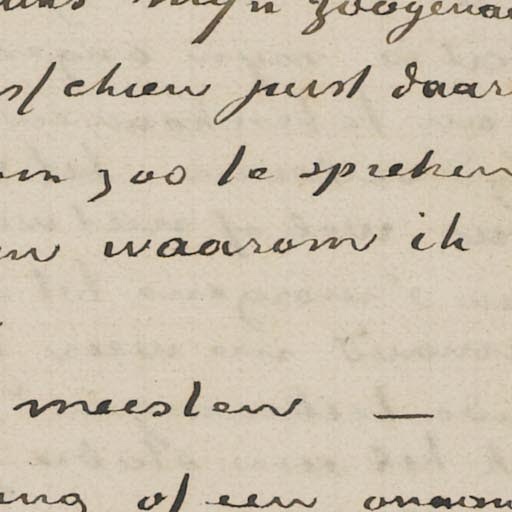 mijn zoogena
sschien juist daar
om zoo te spreken
en waarom ik
meesten —
ing of een onaan